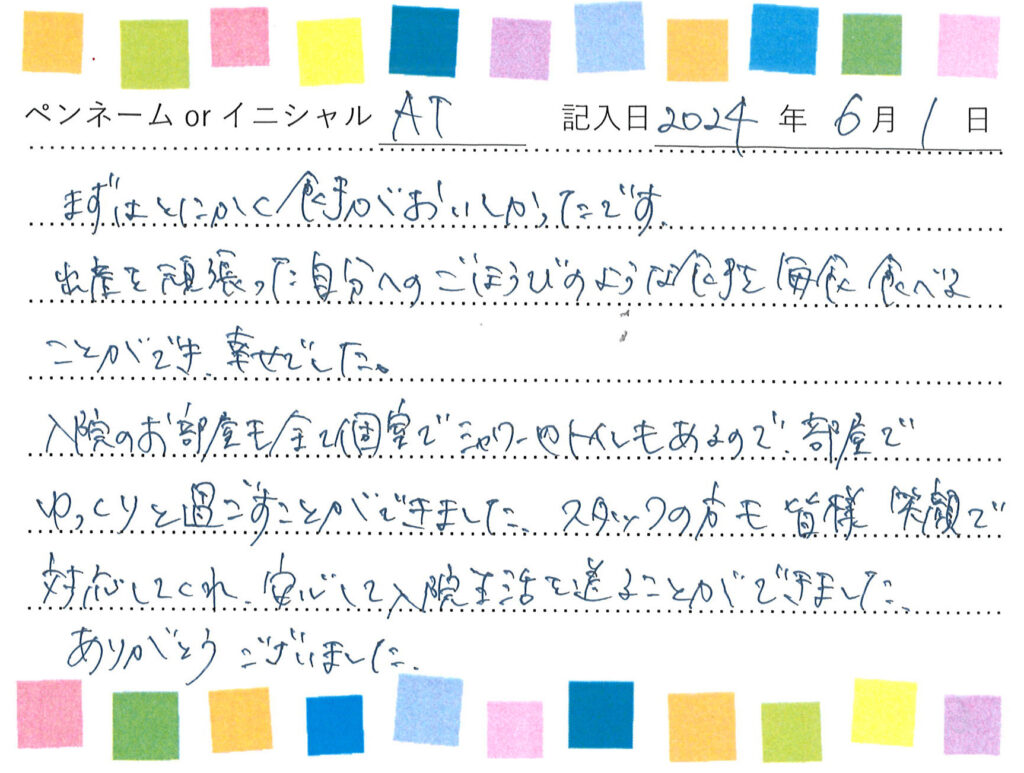 ペンネーム or イニシャル AT 記入日 2024 年 6 月 1 日
まずはとにかく食事がおいしかったです。
出産を頑張った自分へのごほうびのような食事を毎食食べる
ことができ、幸せでした。
入院のお部屋も全て個室でシャワーやトイレもあるので、部屋で
ゆっくりと過ごすことができました。スタッフの方も皆様笑顔で
対応してくれ、安心して入院生活を送ることができました。
ありがとうございました。